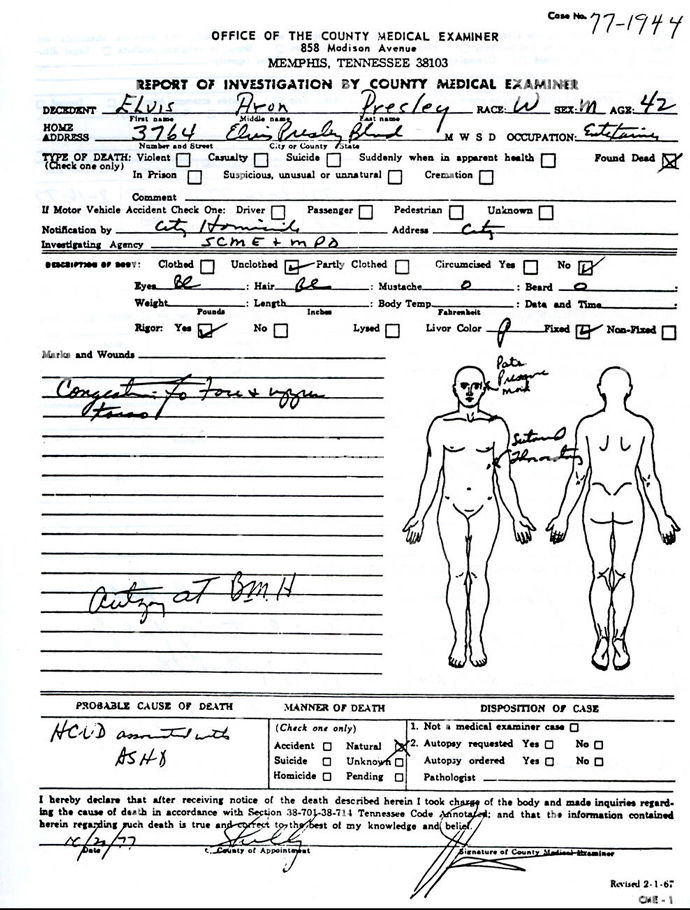 Case No. 77-1944
OFFICE OF THE COUNTY MEDICAL EXAMINER
858 Madison Avenue
MEMPHIS, TENNESSEE 38103
REPORT OF INVESTIGATION BY COUNTY MEDICAL EXAMINER
DECEDENT Elvis Aron Presley RACE: W SEX: M AGE: 42
First name Middle name Last name
HOME ADDRESS 3764 Elvis Presley Blvd M W S D OCCUPATION: Entertainer
Number and Street City or County State
TYPE OF DEATH: Violent Casualty Suicide Suddenly when in apparent health Found Dead
(Check one only) In Prison Suspicious, unusual or unnatural Cremation
Comment
If Motor Vehicle Accident Check One: Driver Passenger Pedestrian Unknown
Notification by City Homicide Address City
Investigating Agency SCME + MPD
DESCRIPTION OF BODY: Clothed Unclothed Partly Clothed Circumcised Yes No
Eyes Bl : Hair Bl : Mustache 0 : Beard 0 :
Weight : Length : Body Temp. : Date and Time :
Pounds Inches Fahrenheit
Rigor: Yes No Lysed Livor Color P Fixed Non-Fixed
Marks and Wounds
Pressure
Congestion to face & upper
torso
Autopsy at BMH
PROBABLE CAUSE OF DEATH MANNER OF DEATH DISPOSITION OF CASE
HCVD associated with
ASHD
(Check one only)
Accident Natural
Suicide Unknown
Homicide Pending
1. Not a medical examiner case
2. Autopsy requested Yes No
Autopsy ordered Yes No
Pathologist
I hereby declare that after receiving notice of the death described herein I took charge of the body and made inquiries regard-
ing the cause of death in accordance with Section 38-701-38-714 Tennessee Code Annotated; and that the information contained
herein regarding such death is true and correct to the best of my knowledge and belief.
10/20/77 Shelby
Date County of Appointment Signature of County Medical Examiner
Revised 2-1-67
CME - 1